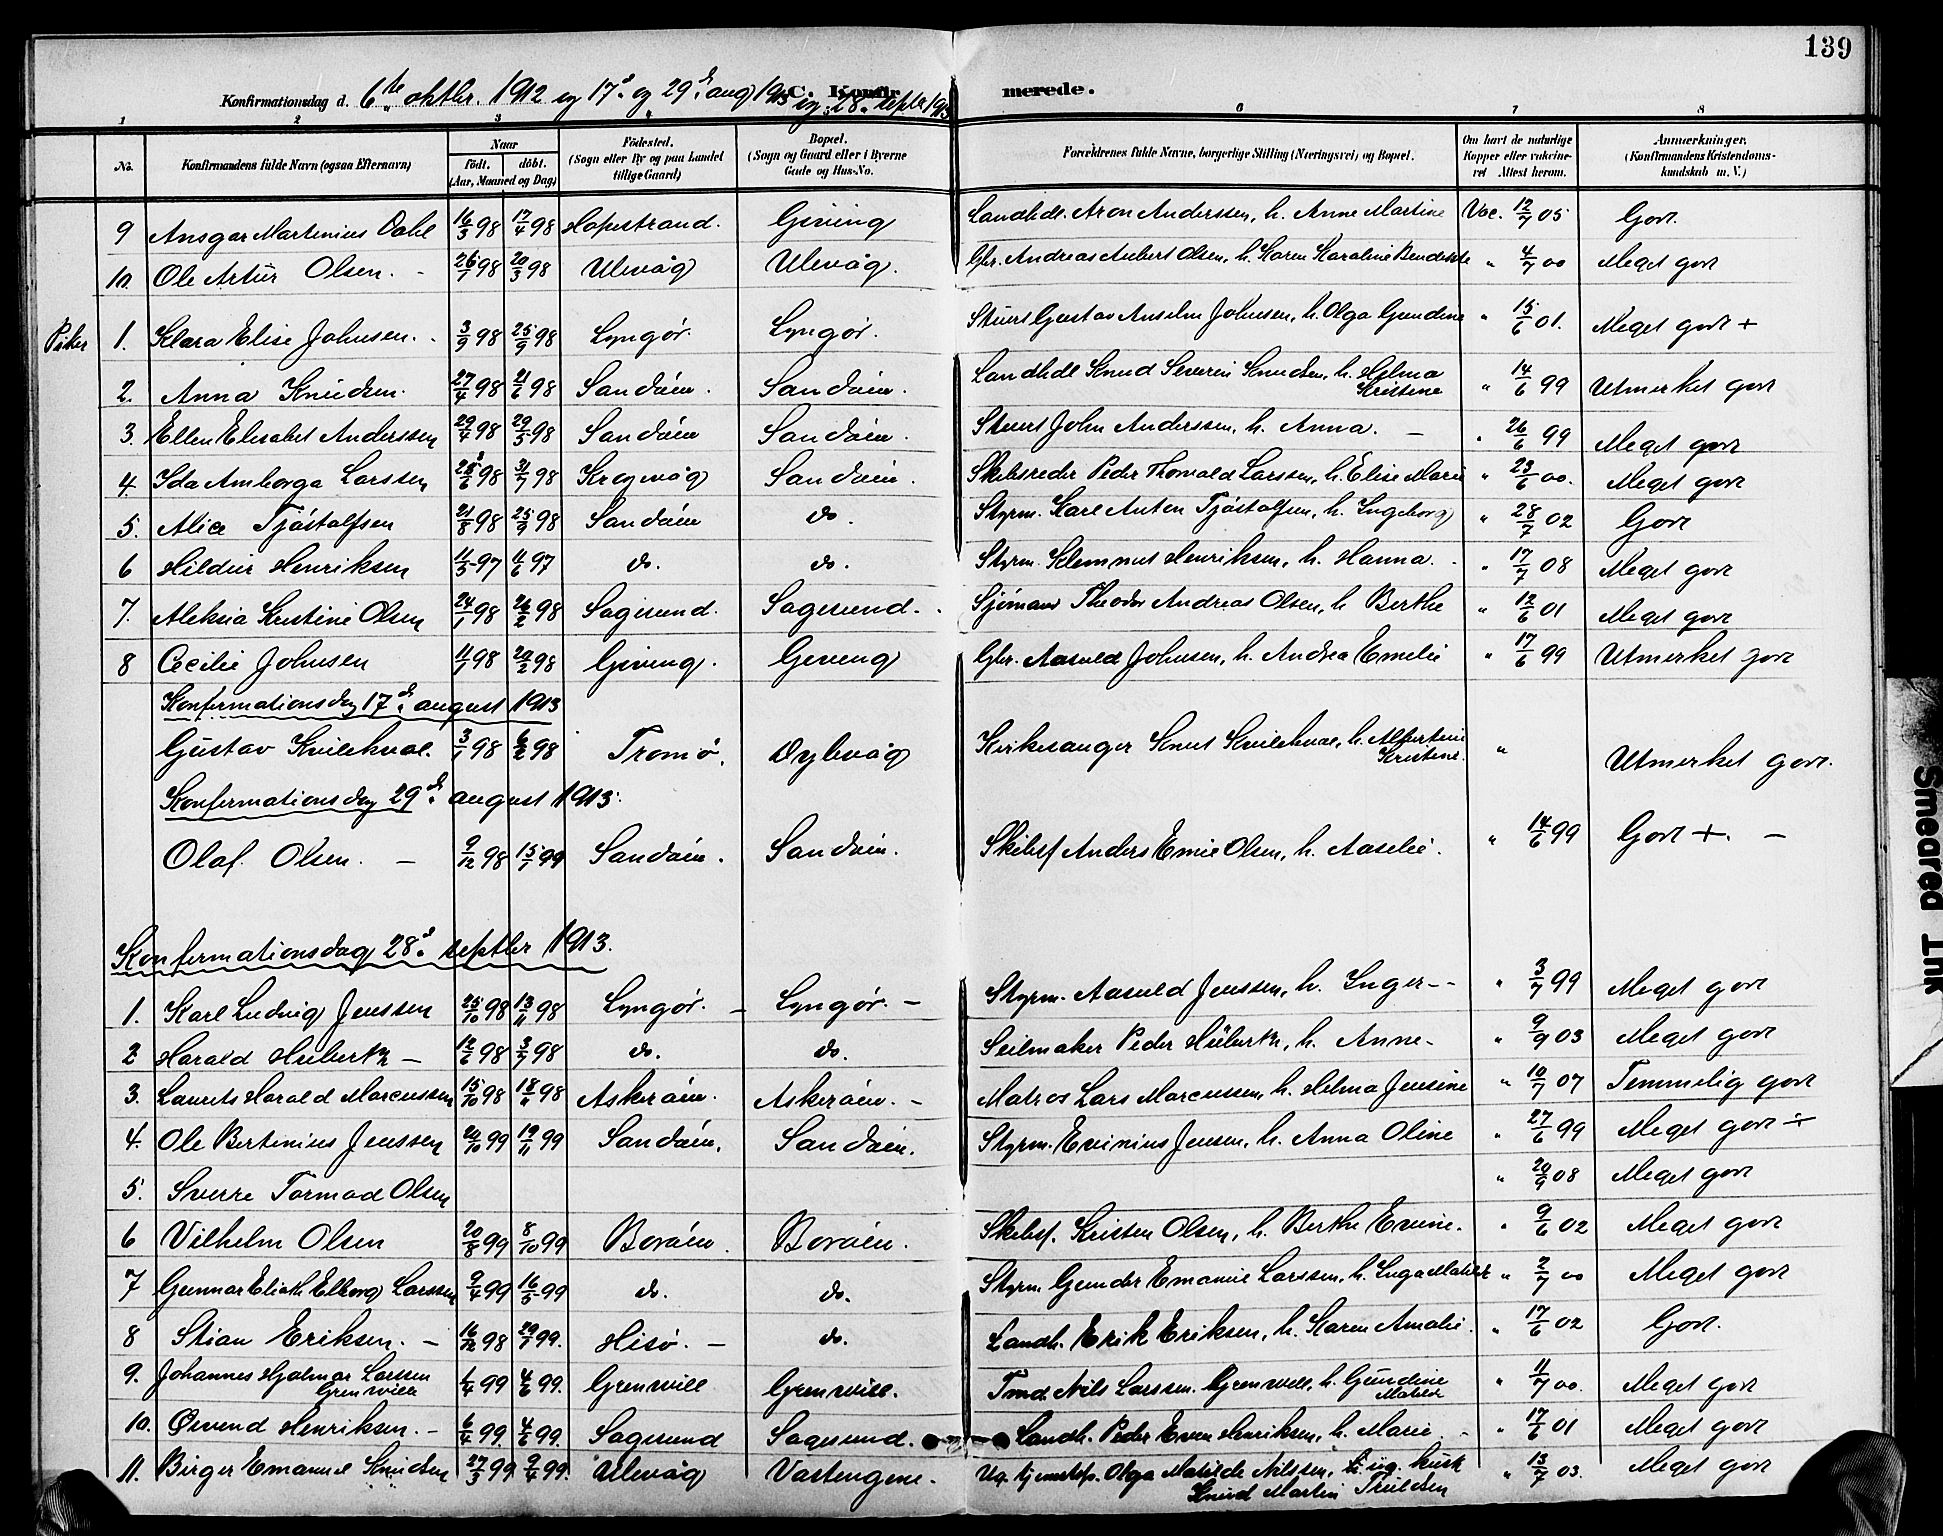 139
C. Konfir merede.
Konfirmationsdag d. 6te oktbr. 1912 og 17d. og 29d. aug 1913 og 28. septbr 1913
1 2 3 6 7 8
No. Konfirmandens fulde Navn (ogsaa Efternavn) Naar født. døbt. (Aar, Maaned og Dag) Fødested. (Sogn eller By og paa Landet tillige Gaard) Bopæl. (Sogn og Gaard eller i Byerne Gade og Hus-No. Forældrenes fulde Navne, borgerlige Stilling (Næringsvei) og Bopæl. Om havt de naturlige Kopper eller vakcineret Attest herom. Anmærkninger. (Konfirmandens Kristendomskundskab m. V.)
9 Ansgar Martinius Dahl 16/3 98 17/4 98 Hopestrand. Giving Landhdl. Aron Anderssen, h. Anne Martine Vac. 12/7 05 Godt.
10. Ole Artur Olsen. - 26/1 98 20/3 98 Ulevåg Ulevåg. Gbr. Andreas Aubert Olsen, h. Karen Karoline Bendikte " 4/7 00 Meget godt
Piker 1. Klara Elise Johnsen. 3/9 98 25/9 98 Lyngör. Lyngör. Stuert Gustav Anselm Johnsen, h. Olga Gundine " 15/6 01. Meget godt +
2. Anna Knudsen. 27/4 98 21/6 98 Sandøen. Sandøen. Landhdl Knud Severin Knudsen, h. Helma Kristine " 14/6 99 Utmerket godt
3. Ellen Elisabet Anderssen 29/4 98 29/5 98 Sandøen Sandøen. Stuert John Anderssen, h. Anna. - " 26/6 99 Meget godt
4. Ida Amborga Larssen 25/6 98 31/7 98 Krogvåg Sandøen. Skibsreder Peder Thorvald Larssen, h. Elise Marie " 23/6 00. Meget godt
5. Alice Tjöstolfsen 21/8 98 25/9 98 Sandøen do. Styrm. Karl Anton Tjöstolfsen, h. Ingeborg " 28/7 02 Godt
6 Hildur Henriksen 11/5 97 11/6 97 do. do. Styrm. Klemmet Henriksen, h. Hanna. " 17/7 08 Meget godt
7. Aleksia Kristine Olsen 24/1 98 26/2 98 Sagesund. Sagesund. Sjömand Theodor Andreas Olsen, h Berthe " 12/6 01 Meget godt
8 Cecilie Johnsen 11/1 98 20/2 98 Giving. Geveng Gbr. Aasuld Johnsen, h. Andrea Emelie " 17/6 99 Utmerket godt
Konfirmationsdag 17d. august 1913
Gustav Kvilekval. 3/1 98 6/2 98 Tromø. Dybvåg Kirkesanger Knut Kvilekval, h. Albertine Kristine. " Utmerket godt.
Konfirmationsdag 29d. august 1913.
Olaf. Olsen. - 9/12 98 15/1 99 Sandøen. Sandøen. Skibsf Anders Emil Olsen, h. Aaselie. " 14/6 99 Godt +. -
Konfirmationsdag 28d. septbr 1913.
1. Karl Ludvig Jenssen 25/10 98 13/11 98 Lyngör. - Lyngör. - Styrm. Aasuld Jenssen, h. Inger - - " 3/7 99 Meget godt
2 Harald Hubertz - 12/6 98 3/7 98 do. do. Seilmaker Peder Hubertz, h. Anne - " 9/9 03 Meget godt
3. Laurits Harald Marcussen 15/10 98 18/11 98 Askerøen. Askerøen. - Matros Lars Marcussen, h. Helma Jensine " 10/7 07 Temmelig godt
4. Ole Bertinius Jenssen 20/10 99 19/11 99 Sandøen. Sandøen. Styrm. Evinius Jensen, h. Anna Oline " 27/6 99 Meget godt ÷
5. Sverre Tormod Olsen " 20/9 08 Meget godt
6 Vilhelm Olsen 20/8 99 8/10 99 Borøen. Borøen. Skibsf. Kristen Olsen, h. Berthe Evine. " 9/6 02 Meget godt
7 Gunnar Eliath Elborg Larssen 9/4 99 16/5 99 do. do. Styrm Gunder Emanuel Larssen, h. Inga Matilde " 2/7 00 Meget godt
8 Stian Eriksen. - 16/12 98 29/1 99. Hisø. - do. Landh. Erik Eriksen, h. Karen Amalie. " 17/6 02 Godt.
9. Johannes Hjalmar Larssen Grenvill 1/4 99 4/6 99. Grenvill Grenvill. Tmd. Nils Larssen Grenvill, h. Gundine Matilde " 11/7 00. Meget godt
10. Øivend Henriksen. - 6/4 99. 4/6 99. Sagesund Sagesund. Landh. Peder Even Henriksen, h. Marie. " 17/6 01 Meget godt
11. Birger Emanuel Knudsen 27/3 99 9/4 99. Ulevåg Vastengene. Ug. tjenestep. Olga Matilde Nilssen, h. ug. kusk Knud Martin Truldsen " 13/7 03. Meget godt
Smeared Ink